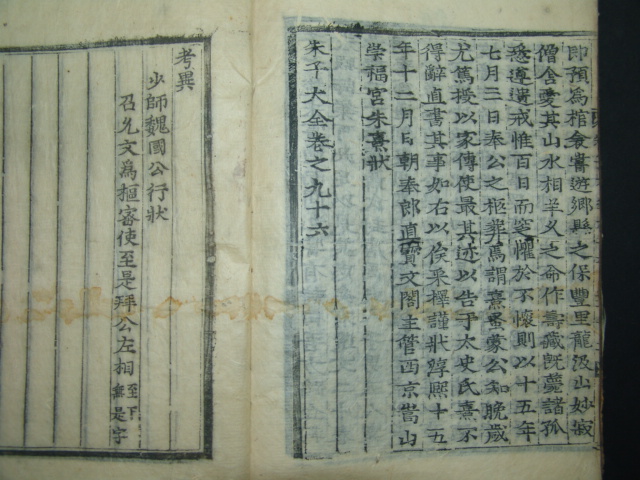 即預爲棺衾嘗遊鄉縣之保豐里龍汲山妙寂
僧舍愛其山水相羊久之命作壽藏旣薨諸孤
悉遵遺戒惟百日而窆懼於不懷則以十五年
七月三日奉公之柩葬焉謂熹蚤蒙公知晚歲
尤篤授以家傳使最其述以告于太史氏熹不
得辭直書其事如右以俟采擇謹狀淳熙十五
年十二月日朝奉郎直寶文閣主管西京嵩山
崇福宮朱熹狀
朱子大全卷之九十六
考異
少師魏國公行狀
召允文爲樞密使至是拜公左相至下無是字